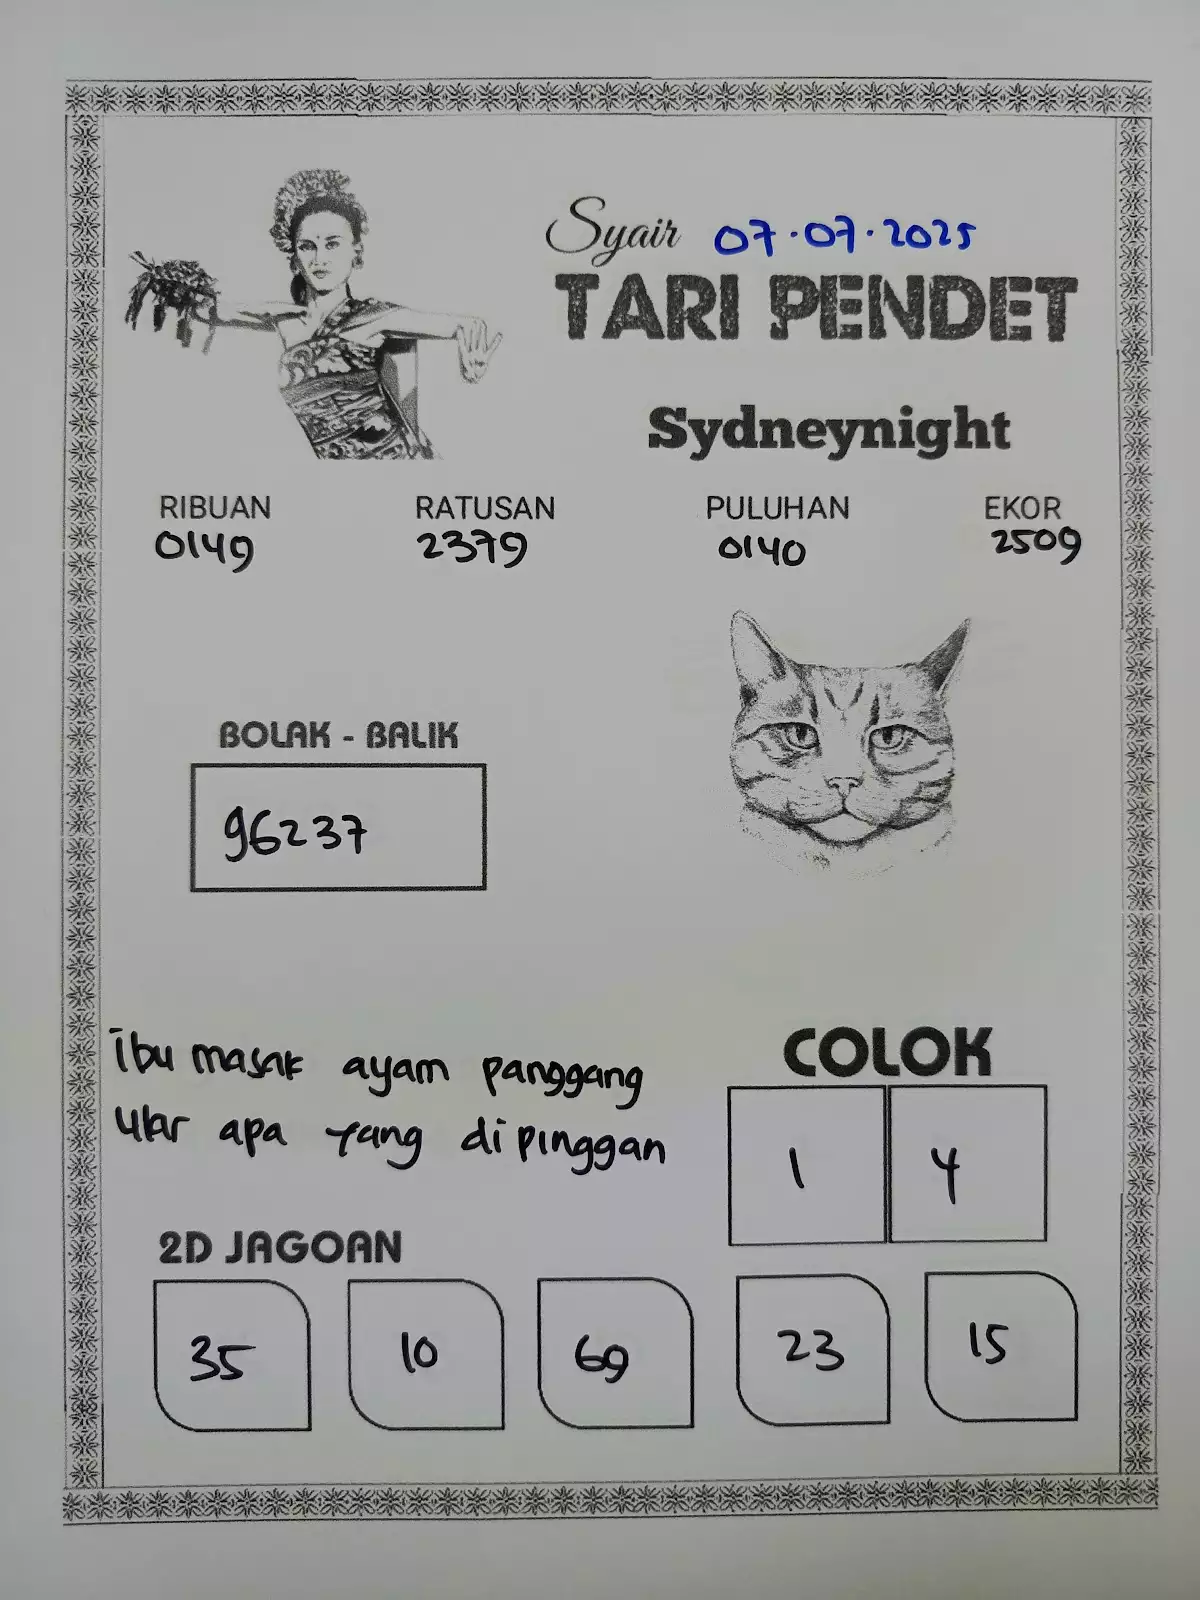 Syair 07.07.2025
TARI PENDET
Sydneynight
RIBUAN RATUSAN PULUHAN EKOR
0149 2379 0140 2509
BOLAK - BALIK
96237
ibu masak ayam panggang
apa yang di pinggan
COLOK
1 4
2D JAGOAN
35 10 69 23 15